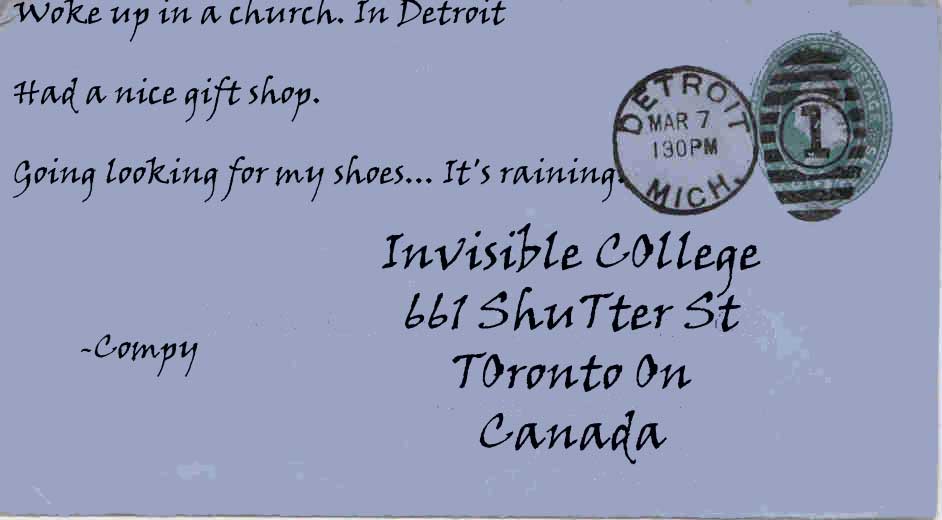 Woke up in a church. In Detroit
Had a nice gift shop.
Going looking for my shoes... It's raining.
DETROIT
MAR 7
130PM
MICH.
POSTAGE
1
Invisible COllege
661 ShuTter St
TOronto On
Canada
-Compy